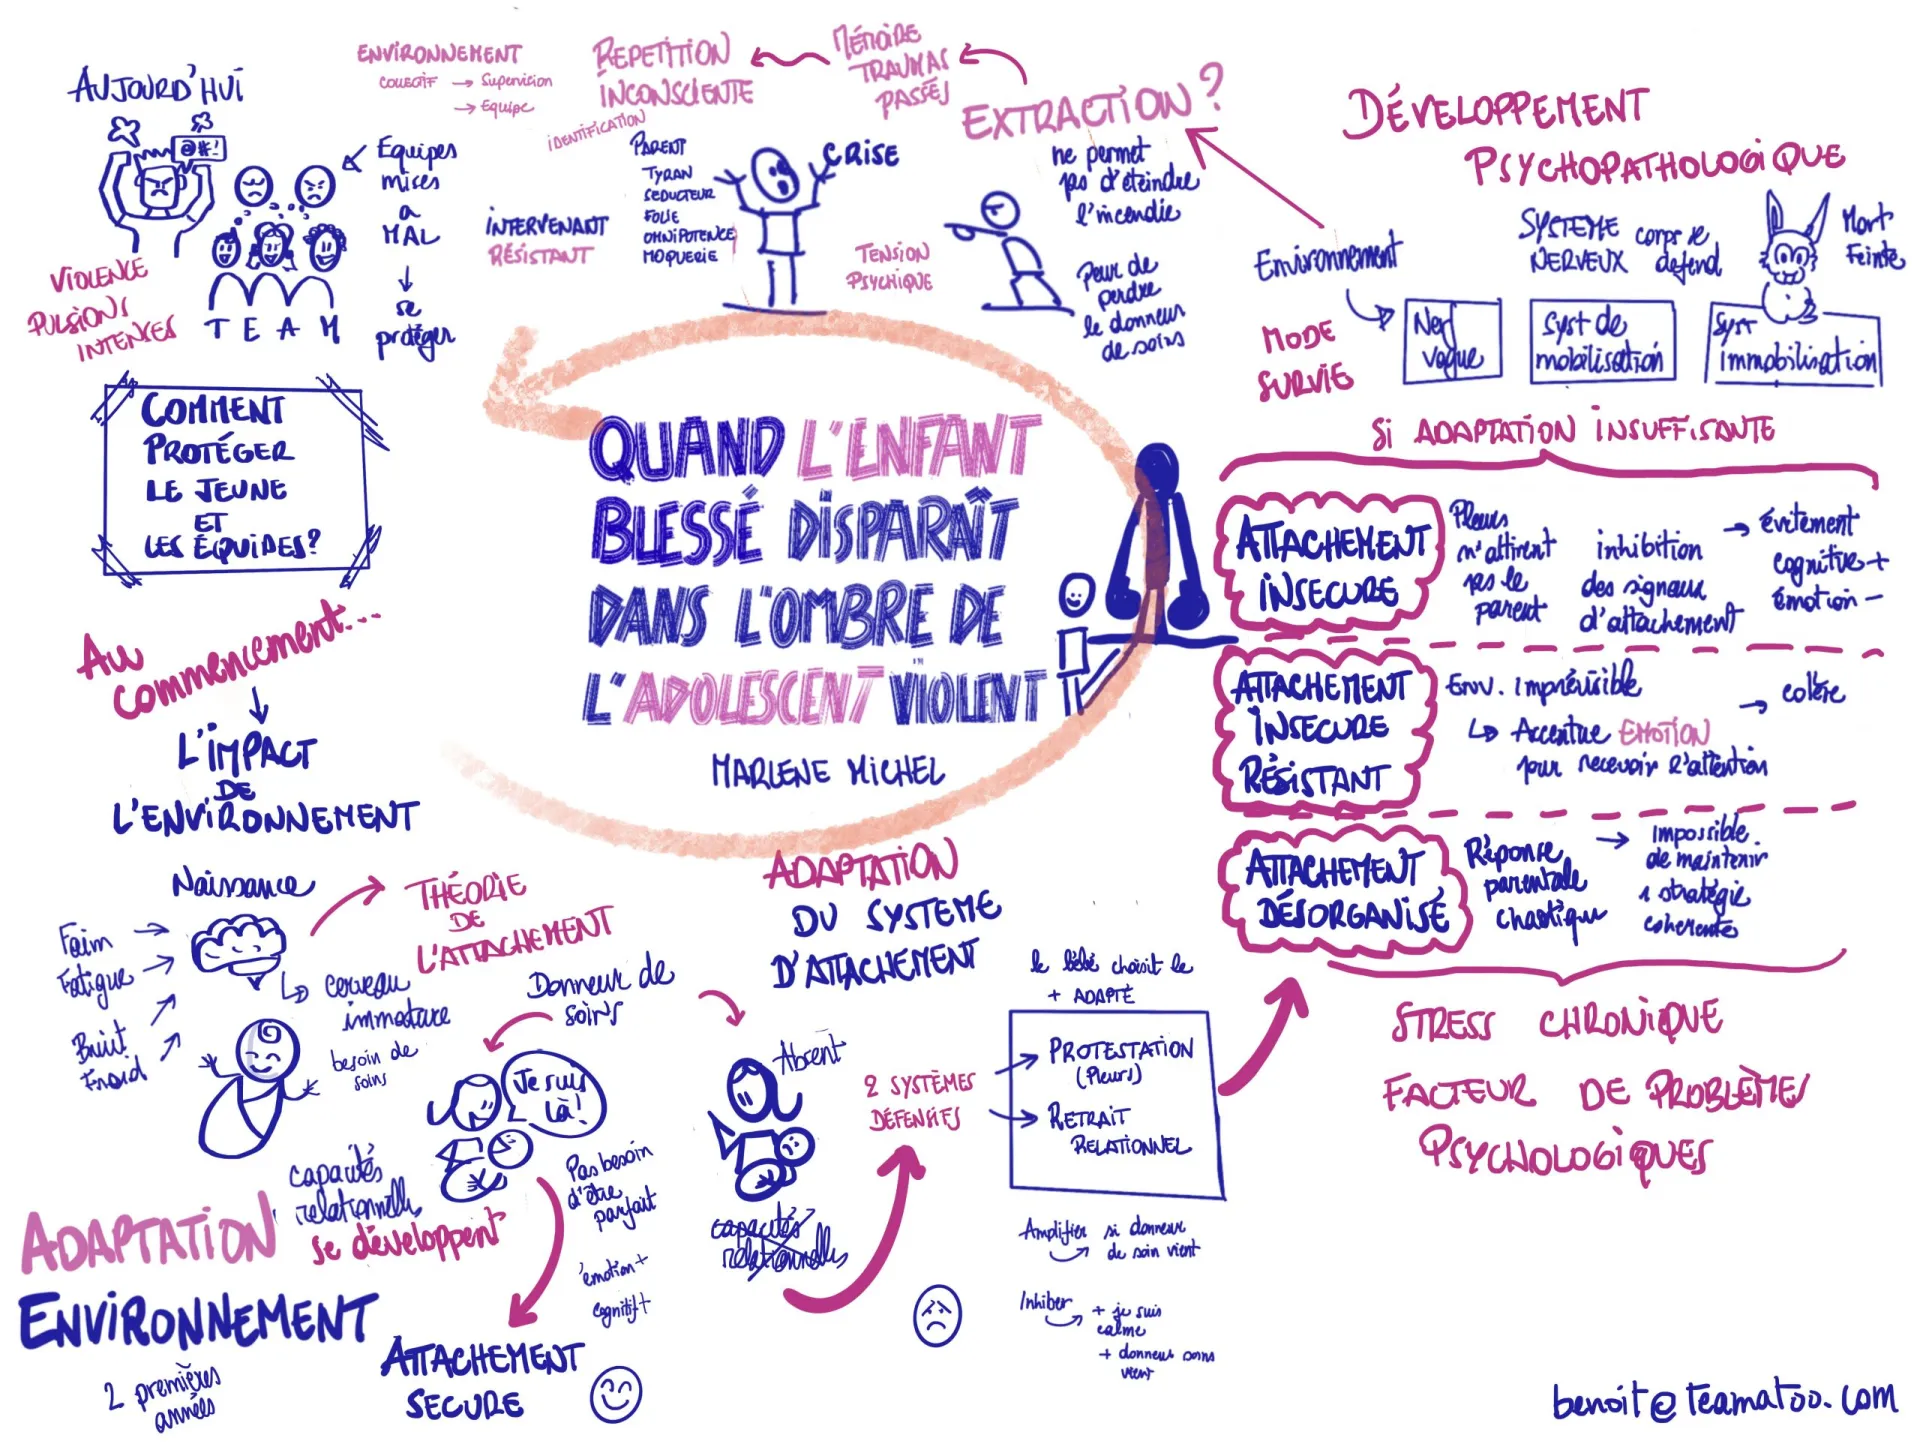 QUAND L'ENFANT
BLESSÉ DISPARAÎT
DANS L'OMBRE DE
L'ADOLESCENT VIOLENT
MARLENE MICHEL
AUJOURD'HUI
@#!
TEAM
VIOLENCE
PULSIONS
INTENSES
Equipes
mises
a
MAL
se
protéger
COMMENT
PROTÉGER
LE JEUNE
ET
LES ÉQUIPES?
Au
commencement...
L'IMPACT
DE
L'ENVIRONNEMENT
Naissance
Faim
Fatigue
Bruit
Froid
→ cerveau
immature
besoin de
soins
THÉORIE
DE
L'ATTACHEMENT
ADAPTATION
ENVIRONNEMENT
2 premières
années
Donneur de
soins
Je suis
là!
capacités
relationnelles
se développent
Pas besoin
d'être
parfait
émotion +
cognitif +
ATTACHEMENT
SECURE
Absent
capacités
relationnelles
ADAPTATION
DU SYSTEME
D'ATTACHEMENT
2 SYSTÈMES
DÉFENSIFS
le bébé choisit le
+ ADAPTÉ
→ PROTESTATION
(Pleurs)
→ RETRAIT
RELATIONNEL
Amplifier si donneur
de soin vient
Inhiber + je suis
calme
+ donneur soins
vient
SI ADAPTATION INSUFFISANTE
ATTACHEMENT
INSECURE
Pleurs
n'attirent
pas le
parent
inhibition
des signaux
d'attachement
→ évitement
cognitive +
émotion -
ATTACHEMENT
INSECURE
RÉSISTANT
Env. imprévisible
↳ Accentue EMOTION
pour recevoir l'attention
→ colère
ATTACHEMENT
DÉSORGANISÉ
Réponse
parentale
chaotique
→ impossible
de maintenir
1 stratégie
coherente
STRESS CHRONIQUE
FACTEUR DE PROBLÈMES
PSYCHOLOGIQUES
DÉVELOPPEMENT
PSYCHOPATHOLOGIQUE
SYSTEME
NERVEUX
corps se
defend
Mort
Feinte
Environnement
MODE
SURVIE
Nerf
vague
Syst de
mobilisation
Syst
immobilisation
EXTRACTION?
ne permet
pas d'éteindre
l'incendie
Peur de
perdre
le donneur
de soins
MÉMOIRE
TRAUMAS
PASSÉS
REPETITION
INCONSCIENTE
IDENTIFICATION
PARENT
TYRAN
SEDUCTEUR
FOLIE
OMNIPOTENCE
MOQUERIE
CRISE
TENSION
PSYCHIQUE
INTERVENANT
RÉSISTANT
ENVIRONNEMENT
COLLECTIF → Supervision
→ Equipe
benoit@teamatoo.com